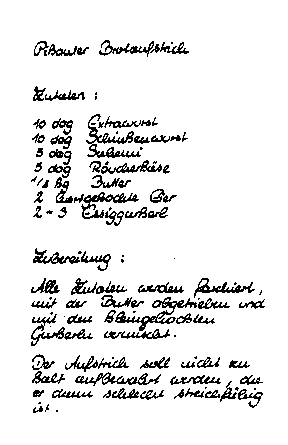 Pikanter Brotaufstrich
Zutaten :
10 dag Extrawurst
10 dag Schinkenwurst
5 dag Salami
5 dag Räucherkäse
1/8 kg Butter
2 hartgekochte Eier
2 - 3 Essiggurkerl
Zubereitung :
Alle Zutaten werden faschiert,
mit der Butter abgetrieben und
mit den kleingehackten
Gurkerln vermischt.
Der Aufstrich soll nicht zu
kalt aufbewahrt werden, da
er dann schlecht streichfähig
ist.